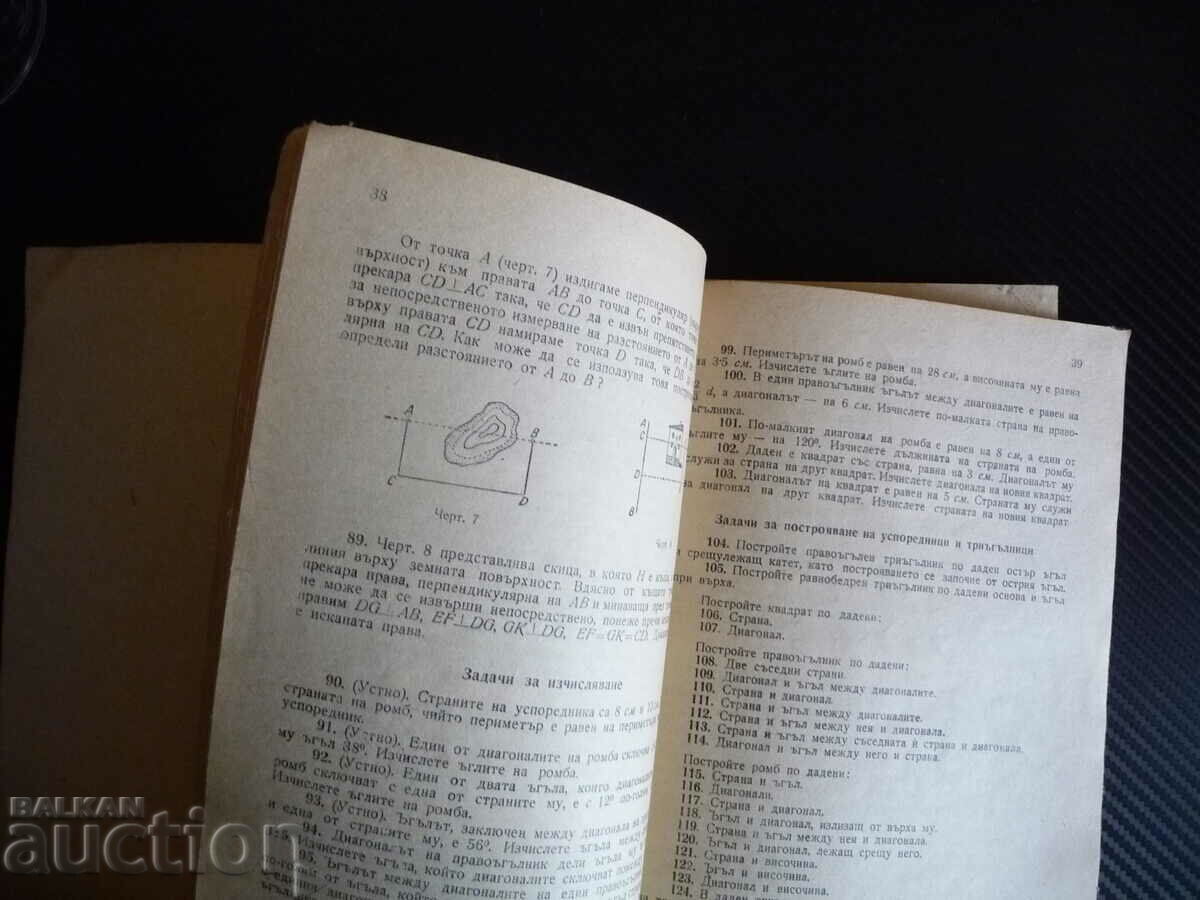 38
От точка А (черт. 7) издигаме перпендикуляр
върхност) към правата АВ до точка С, от която
прекара CD⊥AC така, че CD да е извън препятствието
за непосредственото измерване на разстоянието от А
върху правата CD намираме точка D така, че DB
лярна на CD. Как може да се използува това
определи разстоянието от А до В?
A
B
C
D
Черт. 7
A
C
D
B
Черт.
89. Черт. 8 представлява скица, в която Н е къща при
линия върху земната повърхност. Вдясно от къщата
прекара права, перпендикулярна на АВ и минаваща през
не може да се извърши непосредствено, понеже пречи
правим DG⊥AB, EF⊥DG, GK⊥DG, EF=GK=CD.
е исканата права.
Задачи за изчисляване
90. (Устно). Страните на успоредника са 8 см и
страната на ромб, чийто периметър е равен на периметъра
успоредник.
91. (Устно). Един от диагоналите на ромба сключва
му ъгъл 38°. Изчислете ъглите на ромба.
92. (Устно). Един от двата ъгъла, които диагоналите
ромб сключват с една от страните му, е с 12° по-голям
Изчислете ъглите на ромба.
93. (Устно). Ъгълът, заключен между диагонала
и една от страните му, е 56°. Изчислете ъгъла между
94. Диагоналът на правоъгълник дели ъгъла
Изчислете ъгъла, който диагоналите сключват
95. Ъгълът между диагоналите на един правоъгълник
39
99. Периметърът на ромб е равен на 28 см, а височината му е равна
на 3·5 см. Изчислете ъглите на ромба.
100. В един правоъгълник ъгълът между диагоналите е равен на
d, а диагоналът — на 6 см. Изчислете по-малката страна на право-
ъгълника.
101. По-малкият диагонал на ромба е равен на 8 см, а един от
ъглите му — на 120°. Изчислете дължината на страната на ромба.
102. Даден е квадрат със страна, равна на 3 см. Диагоналът му
служи за страна на друг квадрат. Изчислете диагонала на новия квадрат.
103. Диагоналът на квадрат е равен на 5 см. Страната му служи
за диагонал на друг квадрат. Изчислете страната на новия квадрат
Задачи за построяване на успоредници и триъгълници
104. Постройте правоъгълен триъгълник по даден остър ъгъл
и срещулежащ катет, като построяването се започне от острия ъгъл.
105. Постройте равнобедрен триъгълник по дадени основа и ъгъл
при върха.
Постройте квадрат по дадени:
106. Страна.
107. Диагонал.
Постройте правоъгълник по дадени:
108. Две съседни страни.
109. Диагонал и ъгъл между диагоналите.
110. Страна и диагонал.
111. Страна и ъгъл между диагоналите.
112. Страна и ъгъл между нея и диагонала.
113. Страна и ъгъл между съседната ѝ страна и диагонала.
114. Диагонал и ъгъл между него и страна.
Постройте ромб по дадени:
115. Страна и ъгъл.
116. Диагонали.
117. Страна и диагонал.
118. Ъгъл и диагонал, излизащ от върха му.
119. Страна и ъгъл между нея и диагонала.
120. Ъгъл и диагонал, лежащ срещу него.
121. Страна и височина.
122. Ъгъл и височина.
123. Диагонал и височина.
124. В даден
BALKAN
auction